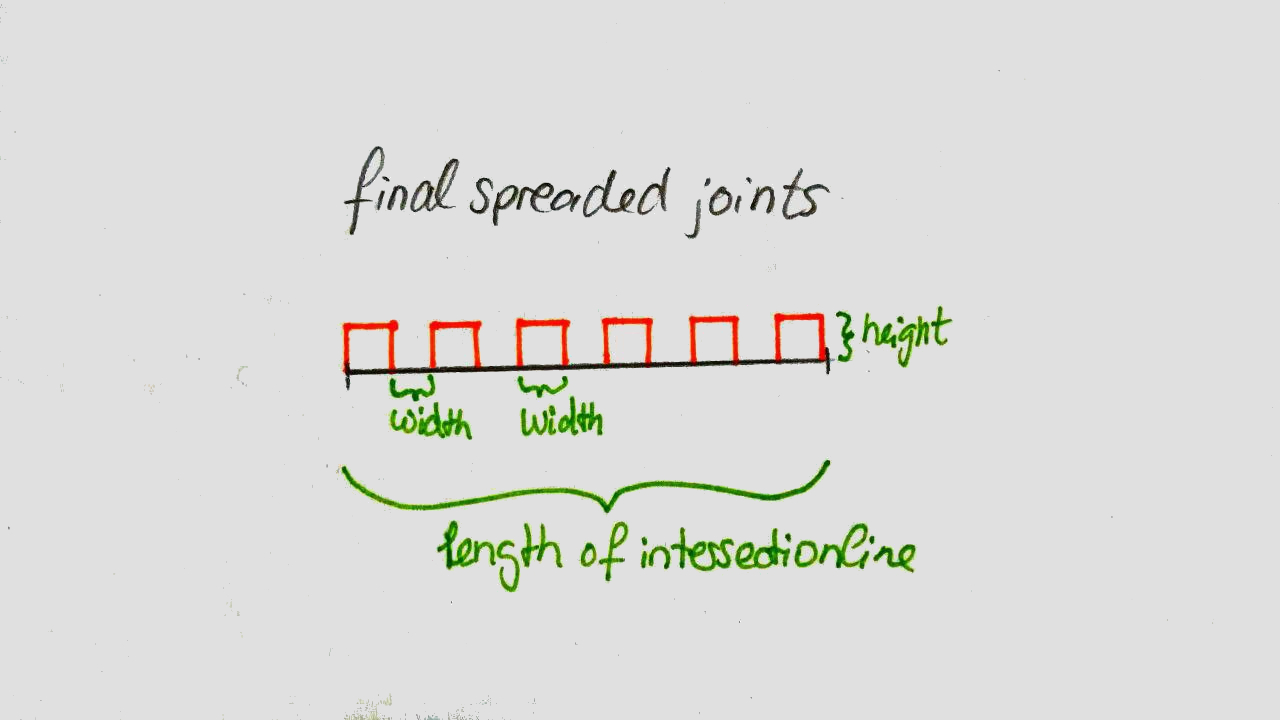 final spreaded joints
height
width width
length of intessectionline